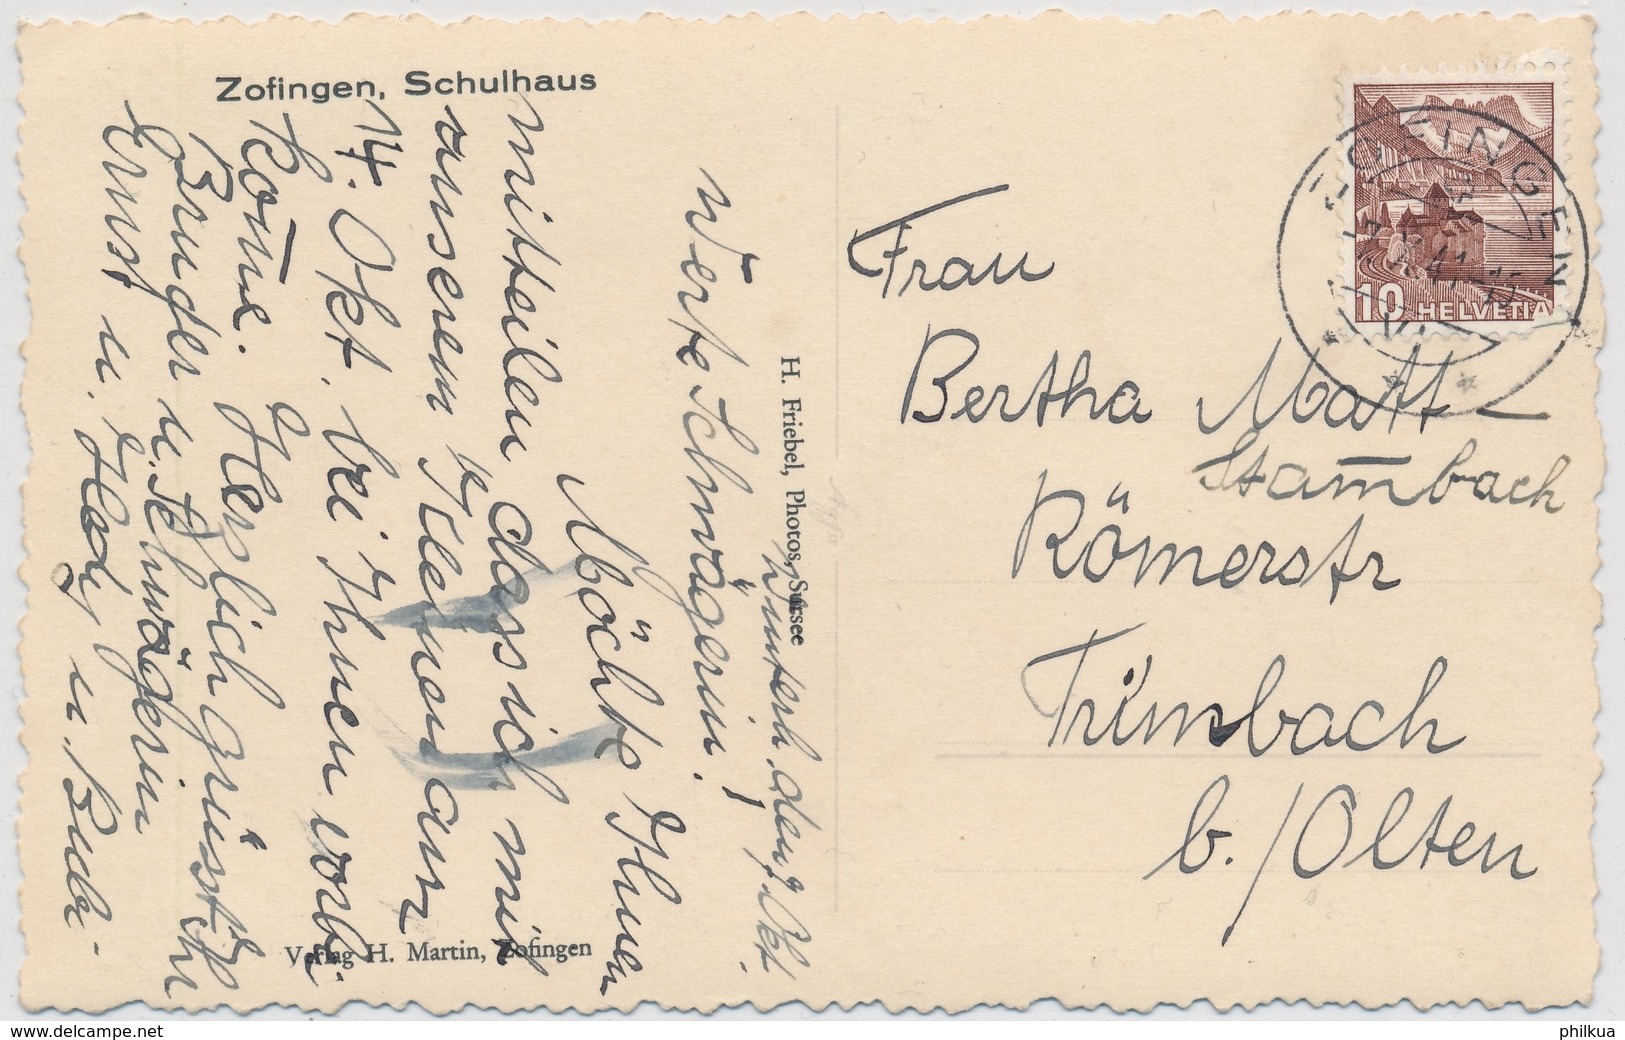 Zofingen, Schulhaus
den 9. Okt.
Werte Schwägerin!
Möchte Ihnen
mitteilen dass ich mit
unserem Kleinen am
14. Okt. bei Ihnen vorbei
kome. Herzlich grüsst Ihr
Bruder u. Schwägerin
Ernst u. Hedy u. Bube.
H. Friebel, Photos, Sursee
Verlag H. Martin, Zofingen
Frau
Bertha Matt-
Stambach
Römerstr
Trimbach
b./Olten
ZOFINGEN
10 HELVETIA
www.delcampe.net
philkua